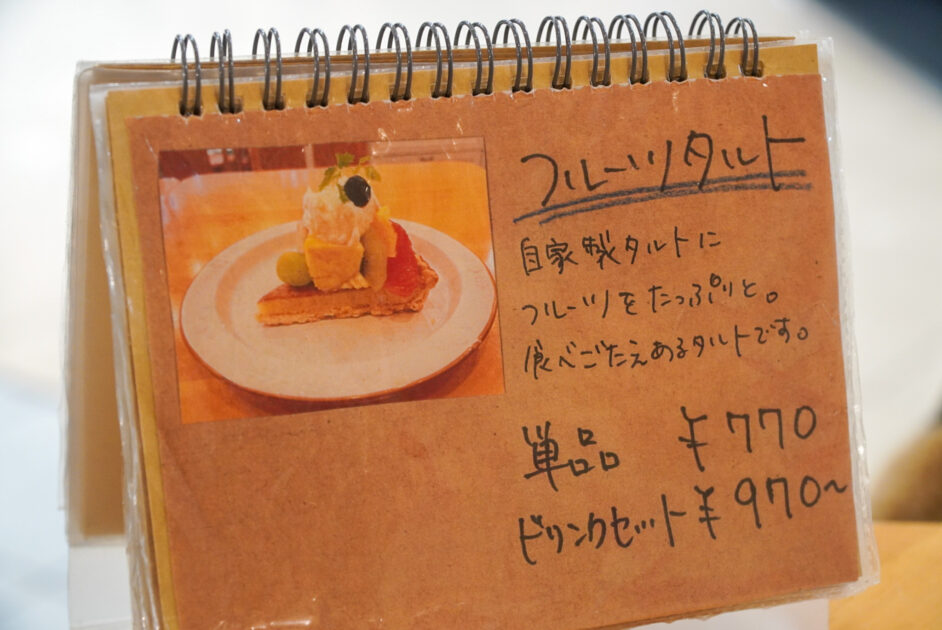 フルーツタルト
自家製タルトに
フルーツをたっぷりと。
食べごたえあるタルトです。
単品 ¥770
ドリンクセット ¥970〜